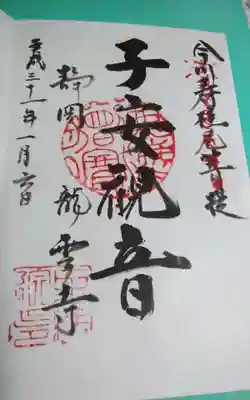 今川寿桂尼菩提
子安観音
静岡 龍雲寺
平成三十一年一月六日